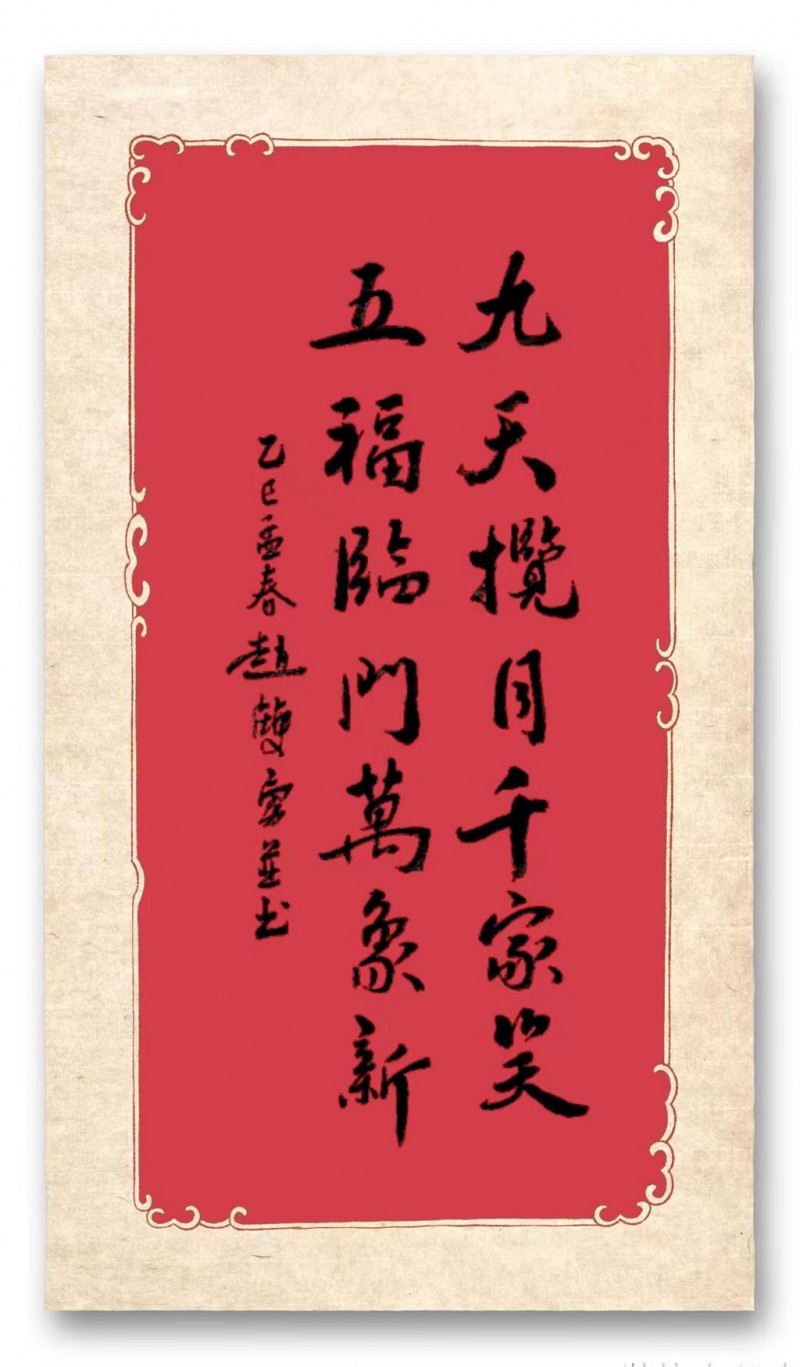 九天攬月千家笑
五福臨門萬象新
乙巳孟春趙雙彥並书